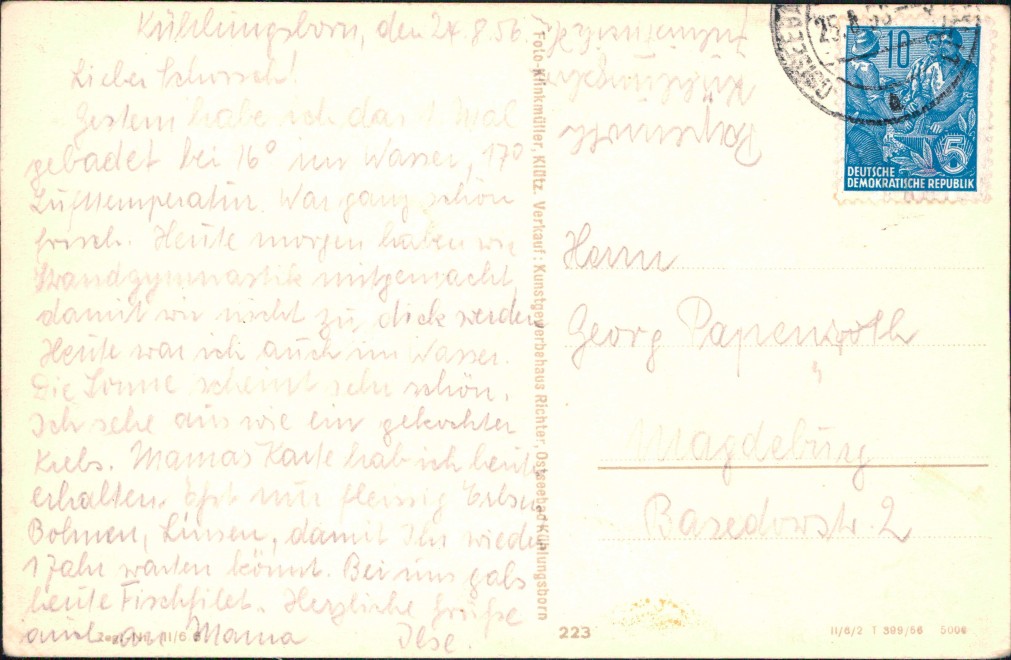 Kühlungsborn, den 24.8.56.
Lieber Schorsch!
Gestern habe ich das 1. Mal
gebadet bei 16° im Wasser, 17°
Lufttemperatur. War ganz schön
frisch. Heute morgen haben wir
Strandgymnastik mitgemacht
damit wir nicht zu dick werden
Heute war ich auch im Wasser.
Die Sonne scheint sehr schön.
Ich sehe aus wie ein gekochter
Krebs. Mamas Karte hab ich heute
erhalten. Eßt nur fleissig Erbsen
Bohnen, Linsen, damit Ihr wieder
1 Jahr warten könnt. Bei uns gabs
heute Fischfilet. Herzliche Grüße
auch an Mama Ilse.
Papenroth
Kühlungsborn
Foto-Klinkmüller, Klütz. Verkauf: Kunstgewerbehaus Richter, Ostseebad Kühlungsborn
OSTSEEBAD
10
5
DEUTSCHE
DEMOKRATISCHE REPUBLIK
Herrn
Georg Papenroth
Magdeburg
Basedowstr. 2
223
II/6/2 T 399/56 5006